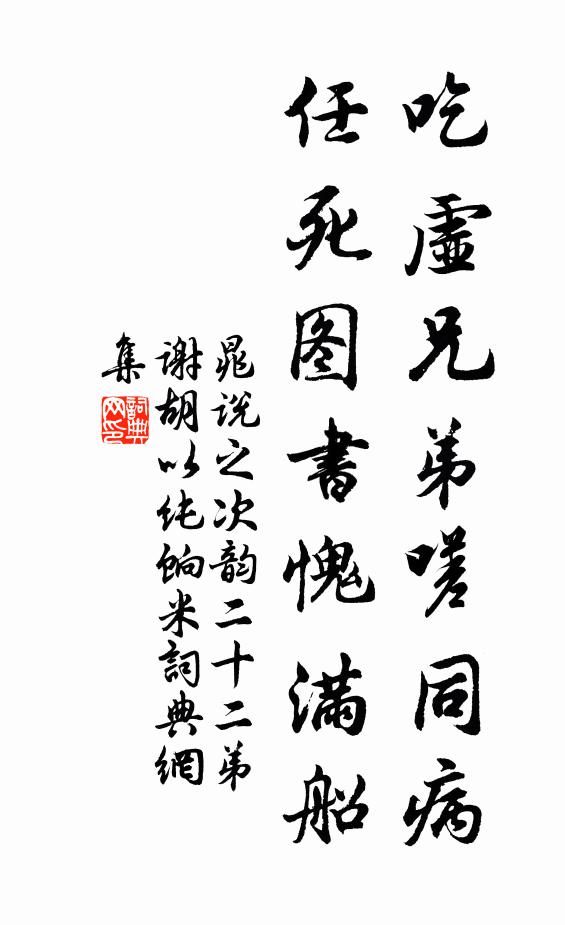 吃虛兄弟嗟同病
任死图書愧滿船
晁说之次韵二十二弟
谢胡以纯餉米詞典網
集
詞典网印